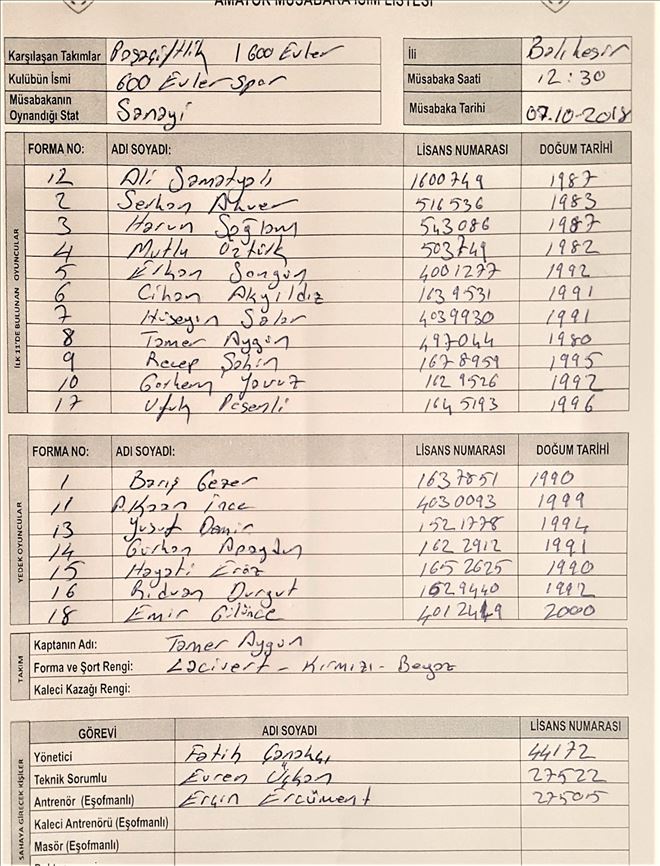 AMATÖR MÜSABAKA İSİM LİSTESİ
Karşılaşan Takımlar Paşaçiftlik / 600 Evler İli Balıkesir
Kulübün İsmi 600 Evler Spor Müsabaka Saati 12:30
Müsabakanın Oynandığı Stat Sanayi Müsabaka Tarihi 07.10.2018
İLK 11'DE BULUNAN OYUNCULAR
FORMA NO: ADI SOYADI: LİSANS NUMARASI DOĞUM TARİHİ
12 Ali Samatyalı 1600749 1987
2 Serkan Akver 516536 1983
3 Harun Sağlam 543086 1987
4 Mutlu Öztürk 503749 1982
5 Erhan Songün 4001277 1992
6 Cihan Akyıldız 1639531 1991
7 Hüseyin Salar 4039930 1991
8 Tamer Aygün 497044 1980
9 Recep Şahin 1678959 1995
10 Görkem Yavuz 1629526 1992
17 Ufuk Pesenli 1645193 1996
YEDEK OYUNCULAR
FORMA NO: ADI SOYADI: LİSANS NUMARASI DOĞUM TARİHİ
1 Barış Gezer 1637851 1990
11 A.Kaan İnce 4030093 1999
13 Yusuf Demir 1521778 1994
14 Gürkan Apaydın 1622912 1991
15 Hayati Eröz 1652625 1990
16 Rıdvan Durgut 1629440 1992
18 Emir Gülünce 4012449 2000
TAKIM
Kaptanın Adı: Tamer Aygün
Forma ve Şort Rengi: Lacivert - Kırmızı - Beyaz
Kaleci Kazağı Rengi:
SAHAYA GİRECEK KİŞİLER
GÖREVİ ADI SOYADI LİSANS NUMARASI
Yönetici Fatih Çanakçı 44172
Teknik Sorumlu Evren Üçkan 27522
Antrenör (Eşofmanlı) Erçin Ercüment 275015
Kaleci Antrenörü (Eşofmanlı)
Masör (Eşofmanlı)